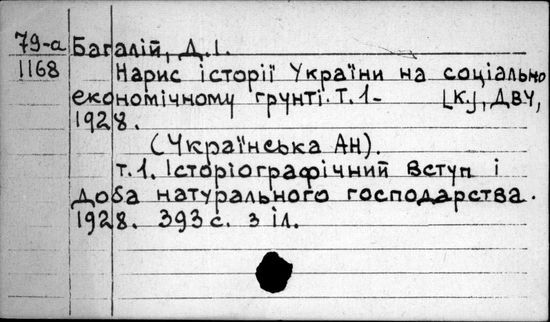 79-а Багалій, Д.І.
1168 Нарис історії України на соціально
економічному грунті. Т.1- [К.], ДВУ,
1928.
(Українська АН).
т.1. Історіографічний вступ і
доба натурального господарства.
1928. 393 с. з іл.